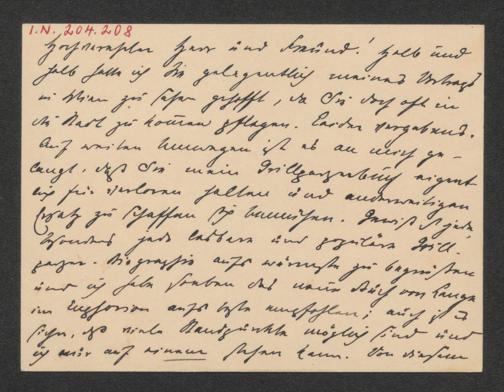 I.N. 204.208
Hochverehrter Herr und Freund! Halb und
halb hatte ich Sie gelegentlich meines Vortrags
in Wien zu sehen gehofft, da Sie doch oft in
die Stadt zu kommen pflegen. Leider vergebens.
Auf weiten Umwegen ist es an mich ge-
langt, daß Sie mein Grillparzerbuch eigent-
lich für verloren halten und anderweitigen
Ersatz zu schaffen sich bemühen. Gewiß ist jede
besonders jede lesbare und populäre Grill-
parzer-Biographie aufs wärmste zu begrüßen
und ich habe soeben das neue Buch von
im Euphorion aufs beste empfohlen; auch ist
sicher, daß viele Standpunkte möglich sind und
ich nur auf einem stehen kann. Von diesem